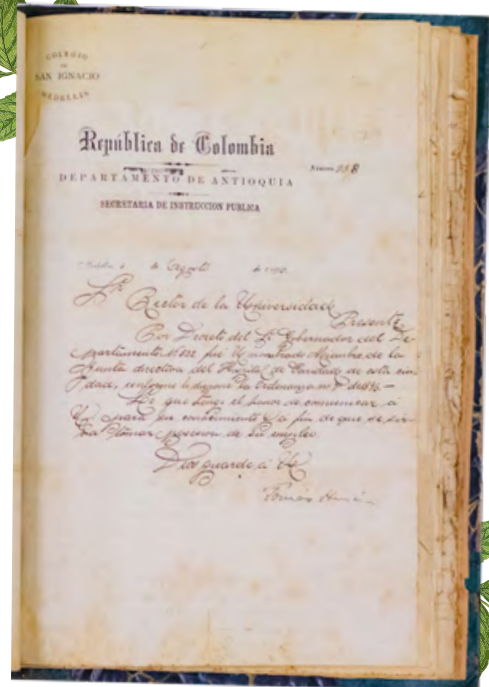 COLEGIO
DE
SAN IGNACIO
MEDELLIN
República de Colombia
Número 258
DEPARTAMENTO DE ANTIOQUIA
SECRETARIA DE INSTRUCCION PUBLICA
de Agosto de
Sr. Rector de la Universidad
Presente.
Por Decreto del Sr. Gobernador del De-
partamento Nº fué U. nombrado Miembro de la
Junta directiva del Hospital de Caridad de esta ciu-
dad, conforme lo dispone la Ordenanza nº
Lo que tengo el honor de comunicar á
U. para su conocimiento y a fin de que se sir-
va tomar posesión de su empleo
Dios guarde á U.
Tomás